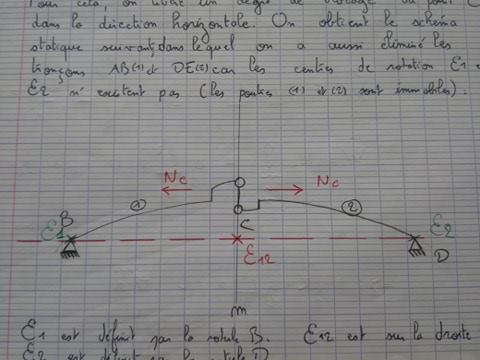 Pour cela, on utilise un degré de
dans la direction horizontale. On obtient le schéma
statique suivant, dans lequel on a aussi éliminé les
tronçons AB(1) et DE(2) car les centres de rotation E1 e
E2 n'existent pas (les parties (1) et (2) sont immobiles).
Nc Nc
1 2
B C E2
E1 E12 D
m
E1 est définit par la rotule B. E12 est sur la droite
E2 est définit par la rotule D